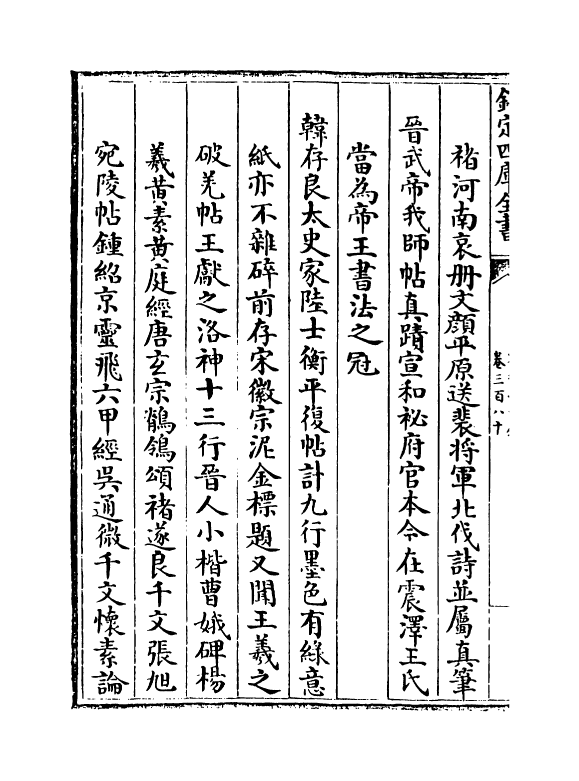 欽定四庫全書
卷三百八十
褚河南哀册文顔平原送裴将軍北伐詩並屬真筆
晉武帝我師帖真蹟宣和祕府官本今在震澤王氏
當為帝王書法之冠
韓存良太史家陸士衡平復帖計九行墨色有綠意
紙亦不雜碎前存宋徽宗泥金標題又聞王羲之
破羌帖王獻之洛神十三行晉人小楷曹娥碑楊
羲黄素黄庭經唐玄宗鶺鴒頌褚遂良千文張旭
宛陵帖鍾紹京靈飛六甲經吳通微千文懷素論